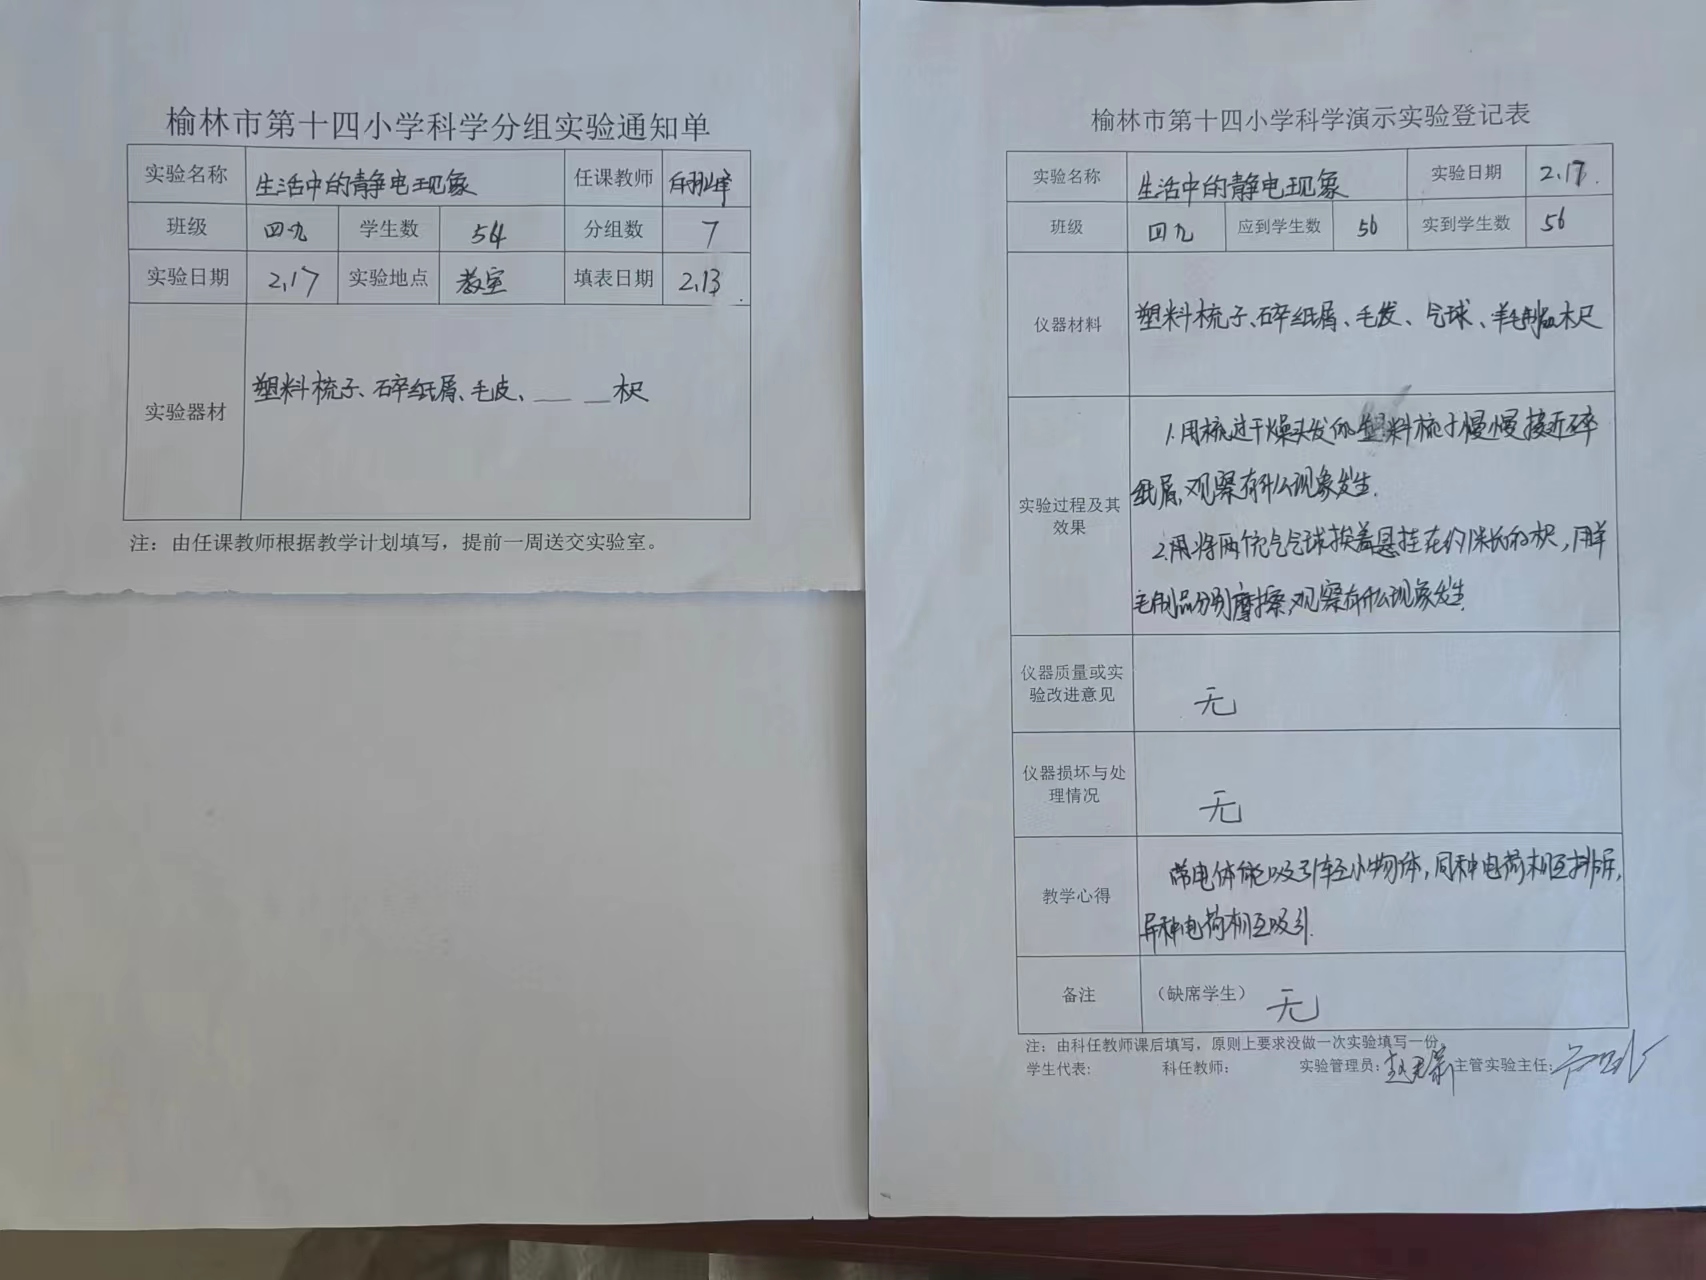 榆林市第十四小学科学分组实验通知单
实验名称 生活中的静电现象 任课教师
班级 四九 学生数 54 分组数 7
实验日期 2.17 实验地点 教室 填表日期 2.13
实验器材 塑料梳子、碎纸屑、毛皮、__ __木尺
注：由任课教师根据教学计划填写，提前一周送交实验室。
榆林市第十四小学科学演示实验登记表
实验名称 生活中的静电现象 实验日期 2.17.
班级 四九 应到学生数 56 实到学生数 56
仪器材料 塑料梳子、碎纸屑、毛发、气球、羊毛制品木尺
实验过程及其效果
1.用梳过干燥头发的塑料梳子慢慢接近碎
纸屑,观察有什么现象发生.
2.用将两个充气气球挨着悬挂在约1米长的木尺,用羊
毛制品分别摩擦,观察有什么现象发生.
仪器质量或实验改进意见 无
仪器损坏与处理情况 无
教学心得 带电体能吸引轻小物体,同种电荷相互排斥,
异种电荷相互吸引.
备注 （缺席学生） 无
注：由科任教师课后填写，原则上要求没做一次实验填写一份。
学生代表: 科任教师: 实验管理员: 主管实验主任: